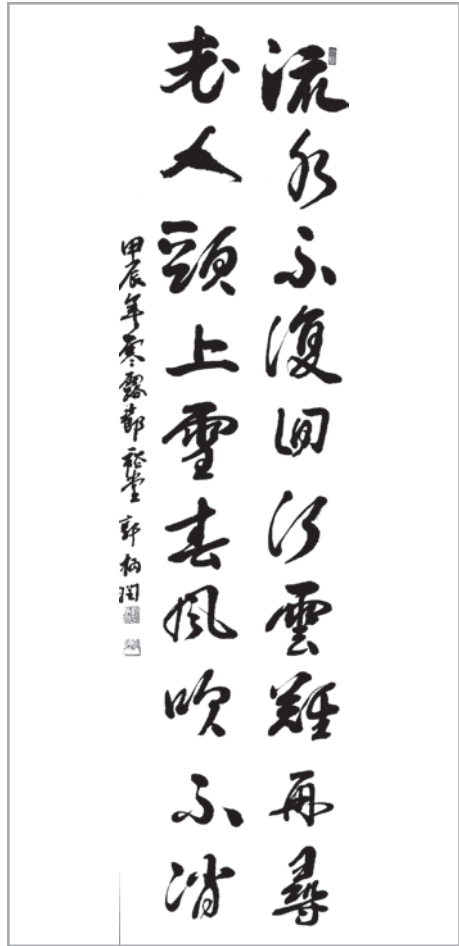 流水不復回行雲難再尋
老人頭上雪春風吹不消
甲辰年寒露節 裕堂 郭柄潤